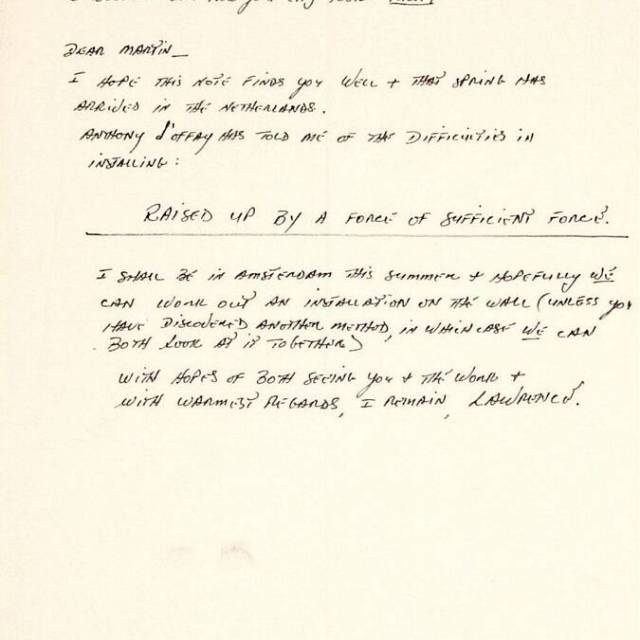 DEAR MARTIN_
I HOPE THIS NOTE FINDS YOU WELL + THAT SPRING HAS
ARRIVED IN THE NETHERLANDS.
ANTHONY d'OFFAY HAS TOLD ME OF THE DIFFICULTIES IN
INSTALLING:
RAISED UP BY A FORCE OF SUFFICIENT FORCE.
I SHALL BE IN AMSTERDAM THIS SUMMER + HOPEFULLY WE
CAN WORK OUT AN INSTALLATION ON THE WALL (UNLESS YOU
HAVE DISCOVERED ANOTHER METHOD, IN WHICH CASE WE CAN
BOTH LOOK AT IT TOGETHER)
WITH HOPES OF BOTH SEEING YOU + THE WORK +
WITH WARMEST REGARDS, I REMAIN, LAWRENCE.